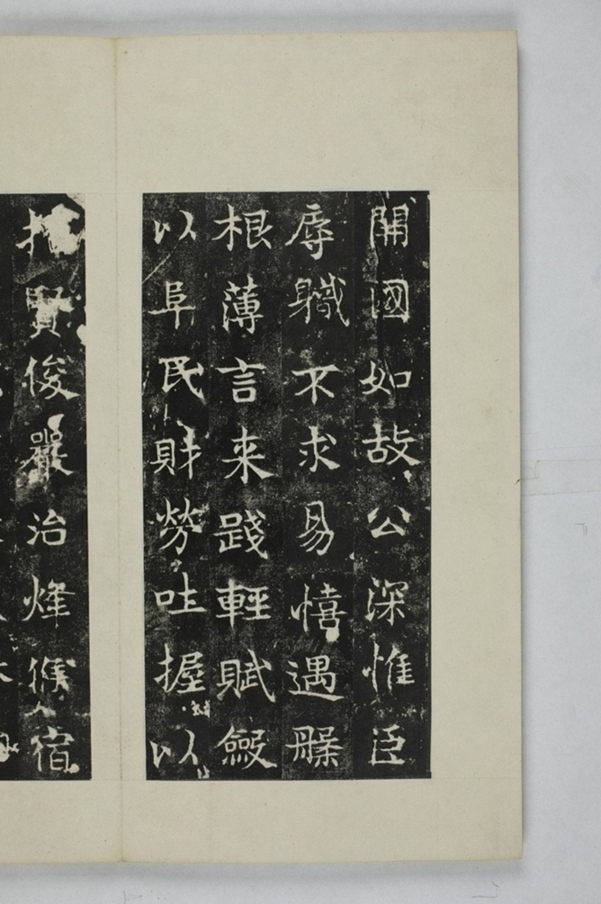 開國如故公深惟臣
辱軄不求易憘遇槃
根薄言来踐輕賦斂
以阜民財勞吐握以
招賢俊嚴治烽候宿